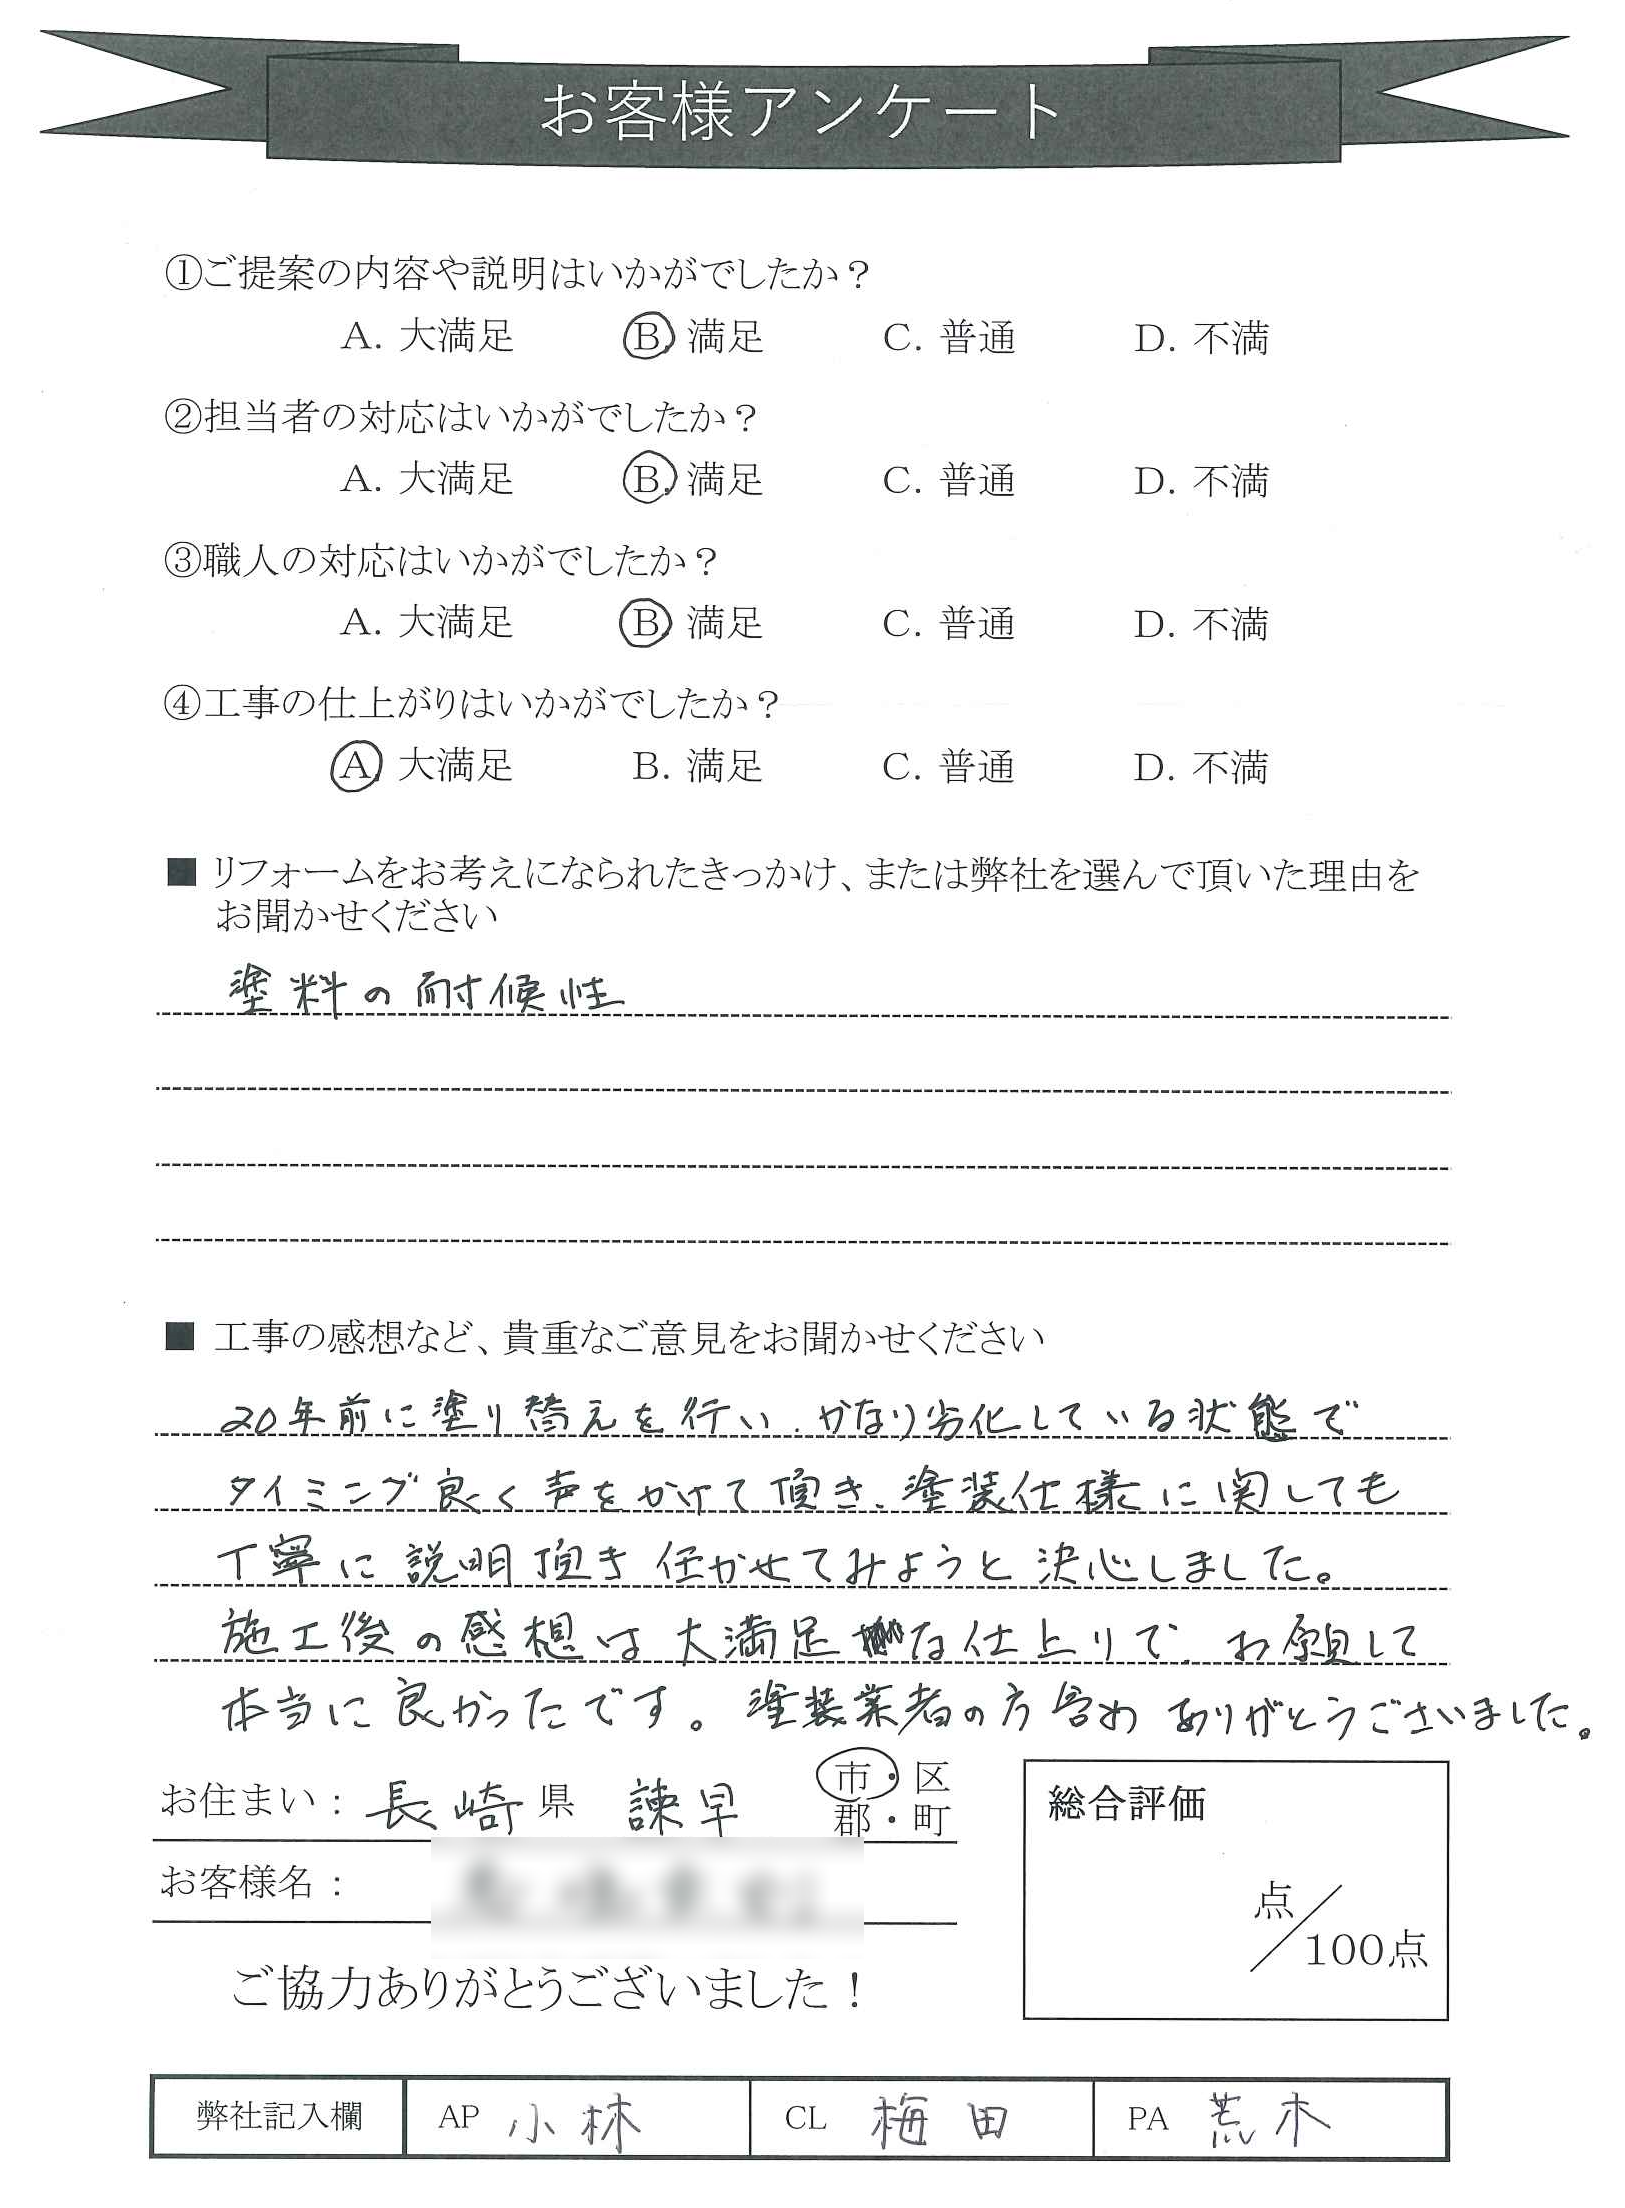 お客様アンケート
①ご提案の内容や説明はいかがでしたか？
A. 大満足 B. 満足 C. 普通 D. 不満
②担当者の対応はいかがでしたか？
A. 大満足 B. 満足 C. 普通 D. 不満
③職人の対応はいかがでしたか？
A. 大満足 B. 満足 C. 普通 D. 不満
④工事の仕上がりはいかがでしたか？
A. 大満足 B. 満足 C. 普通 D. 不満
■ リフォームをお考えになられたきっかけ、または弊社を選んで頂いた理由を
お聞かせください
塗料の耐候性
■ 工事の感想など、貴重なご意見をお聞かせください
20年前に塗り替えを行い、かなり劣化している状態で
タイミング良く声をかけて頂き、塗装仕様に関しても
丁寧に説明頂き任かせてみようと決心しました。
施工後の感想は大満足な仕上りで、お願して
本当に良かったです。塗装業者の方含めありがとうございました。
お住まい： 長崎県 諫早 市・区
郡・町
お客様名：
ご協力ありがとうございました！
総合評価
点／100点
弊社記入欄 AP 小林 CL 梅田 PA 荒木